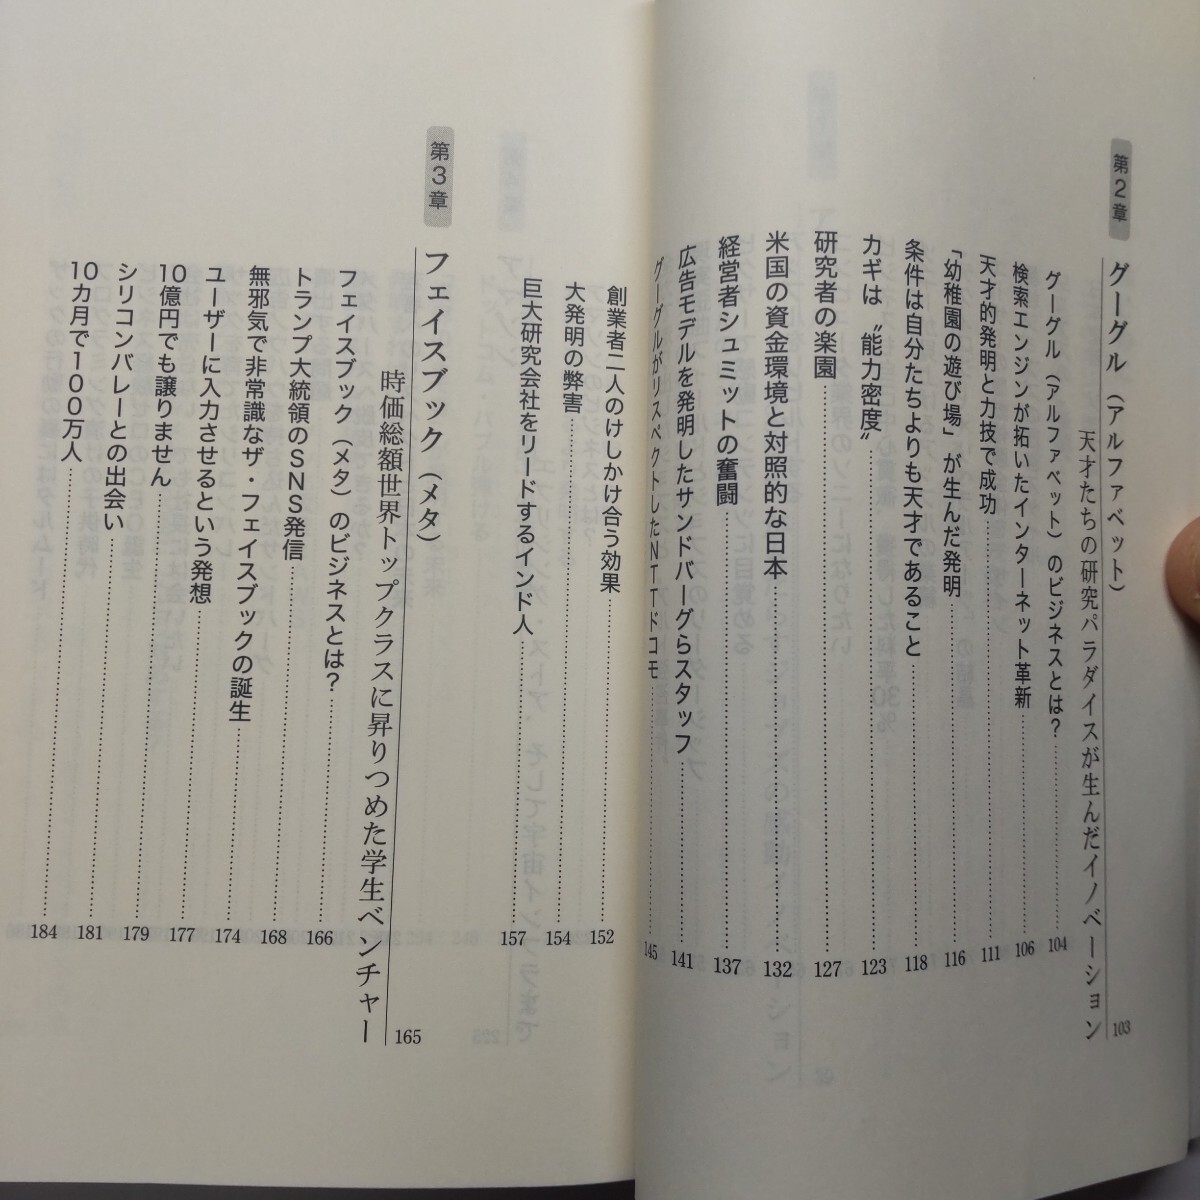 第2章
グーグル（アルファベット）
天才たちの研究パラダイスが生んだイノベーション 103
グーグル（アルファベット）のビジネスとは？ 104
検索エンジンが拓いたインターネット革新 106
天才的発明と力技で成功 111
「幼稚園の遊び場」が生んだ発明 116
条件は自分たちよりも天才であること 118
カギは〝能力密度〟 123
研究者の楽園 127
米国の資金環境と対照的な日本 132
経営者シュミットの奮闘 137
広告モデルを発明したサンドバーグらスタッフ 141
グーグルがリスペクトしたNTTドコモ 145
創業者二人のけしかけ合う効果 152
大発明の弊害 154
巨大研究会社をリードするインド人 157
第3章
フェイスブック（メタ）
時価総額世界トップクラスに昇りつめた学生ベンチャー 165
フェイスブック（メタ）のビジネスとは？ 166
トランプ大統領のSNS発信 168
無邪気で非常識なザ・フェイスブックの誕生 174
ユーザーに入力させるという発想 177
10億円でも譲りません 179
シリコンバレーとの出会い 181
10カ月で100万人 184